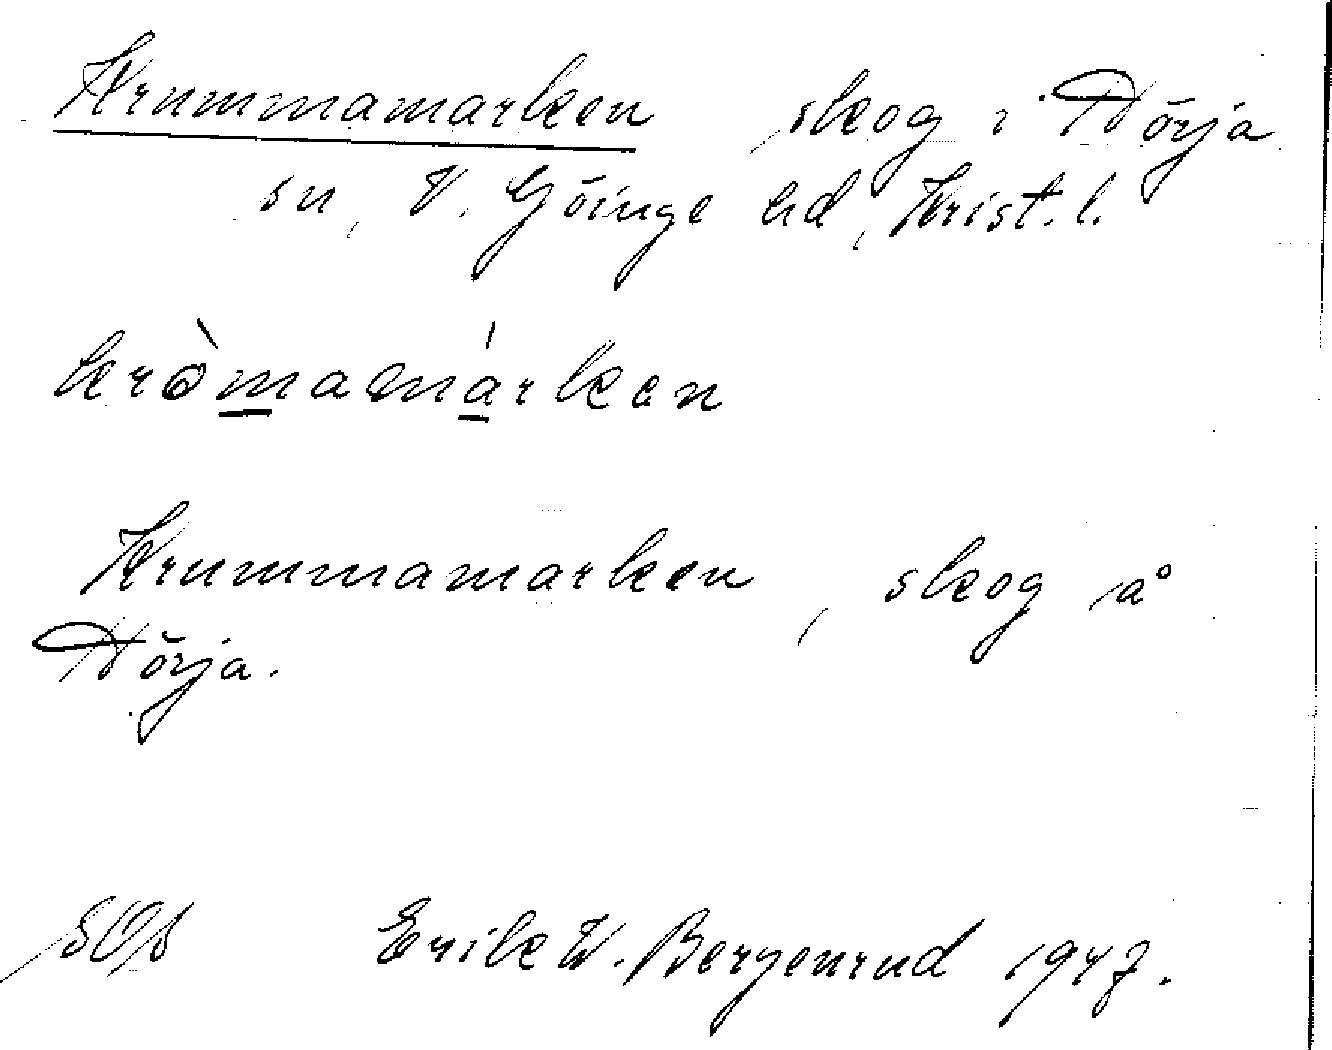 Krummamarken skog i Hörja
sn, V. Göinge hd, Krist. l.
kròmamárkan
Krummamarken, skog å
Hörja.
Erik W. Bergenrud 1947.